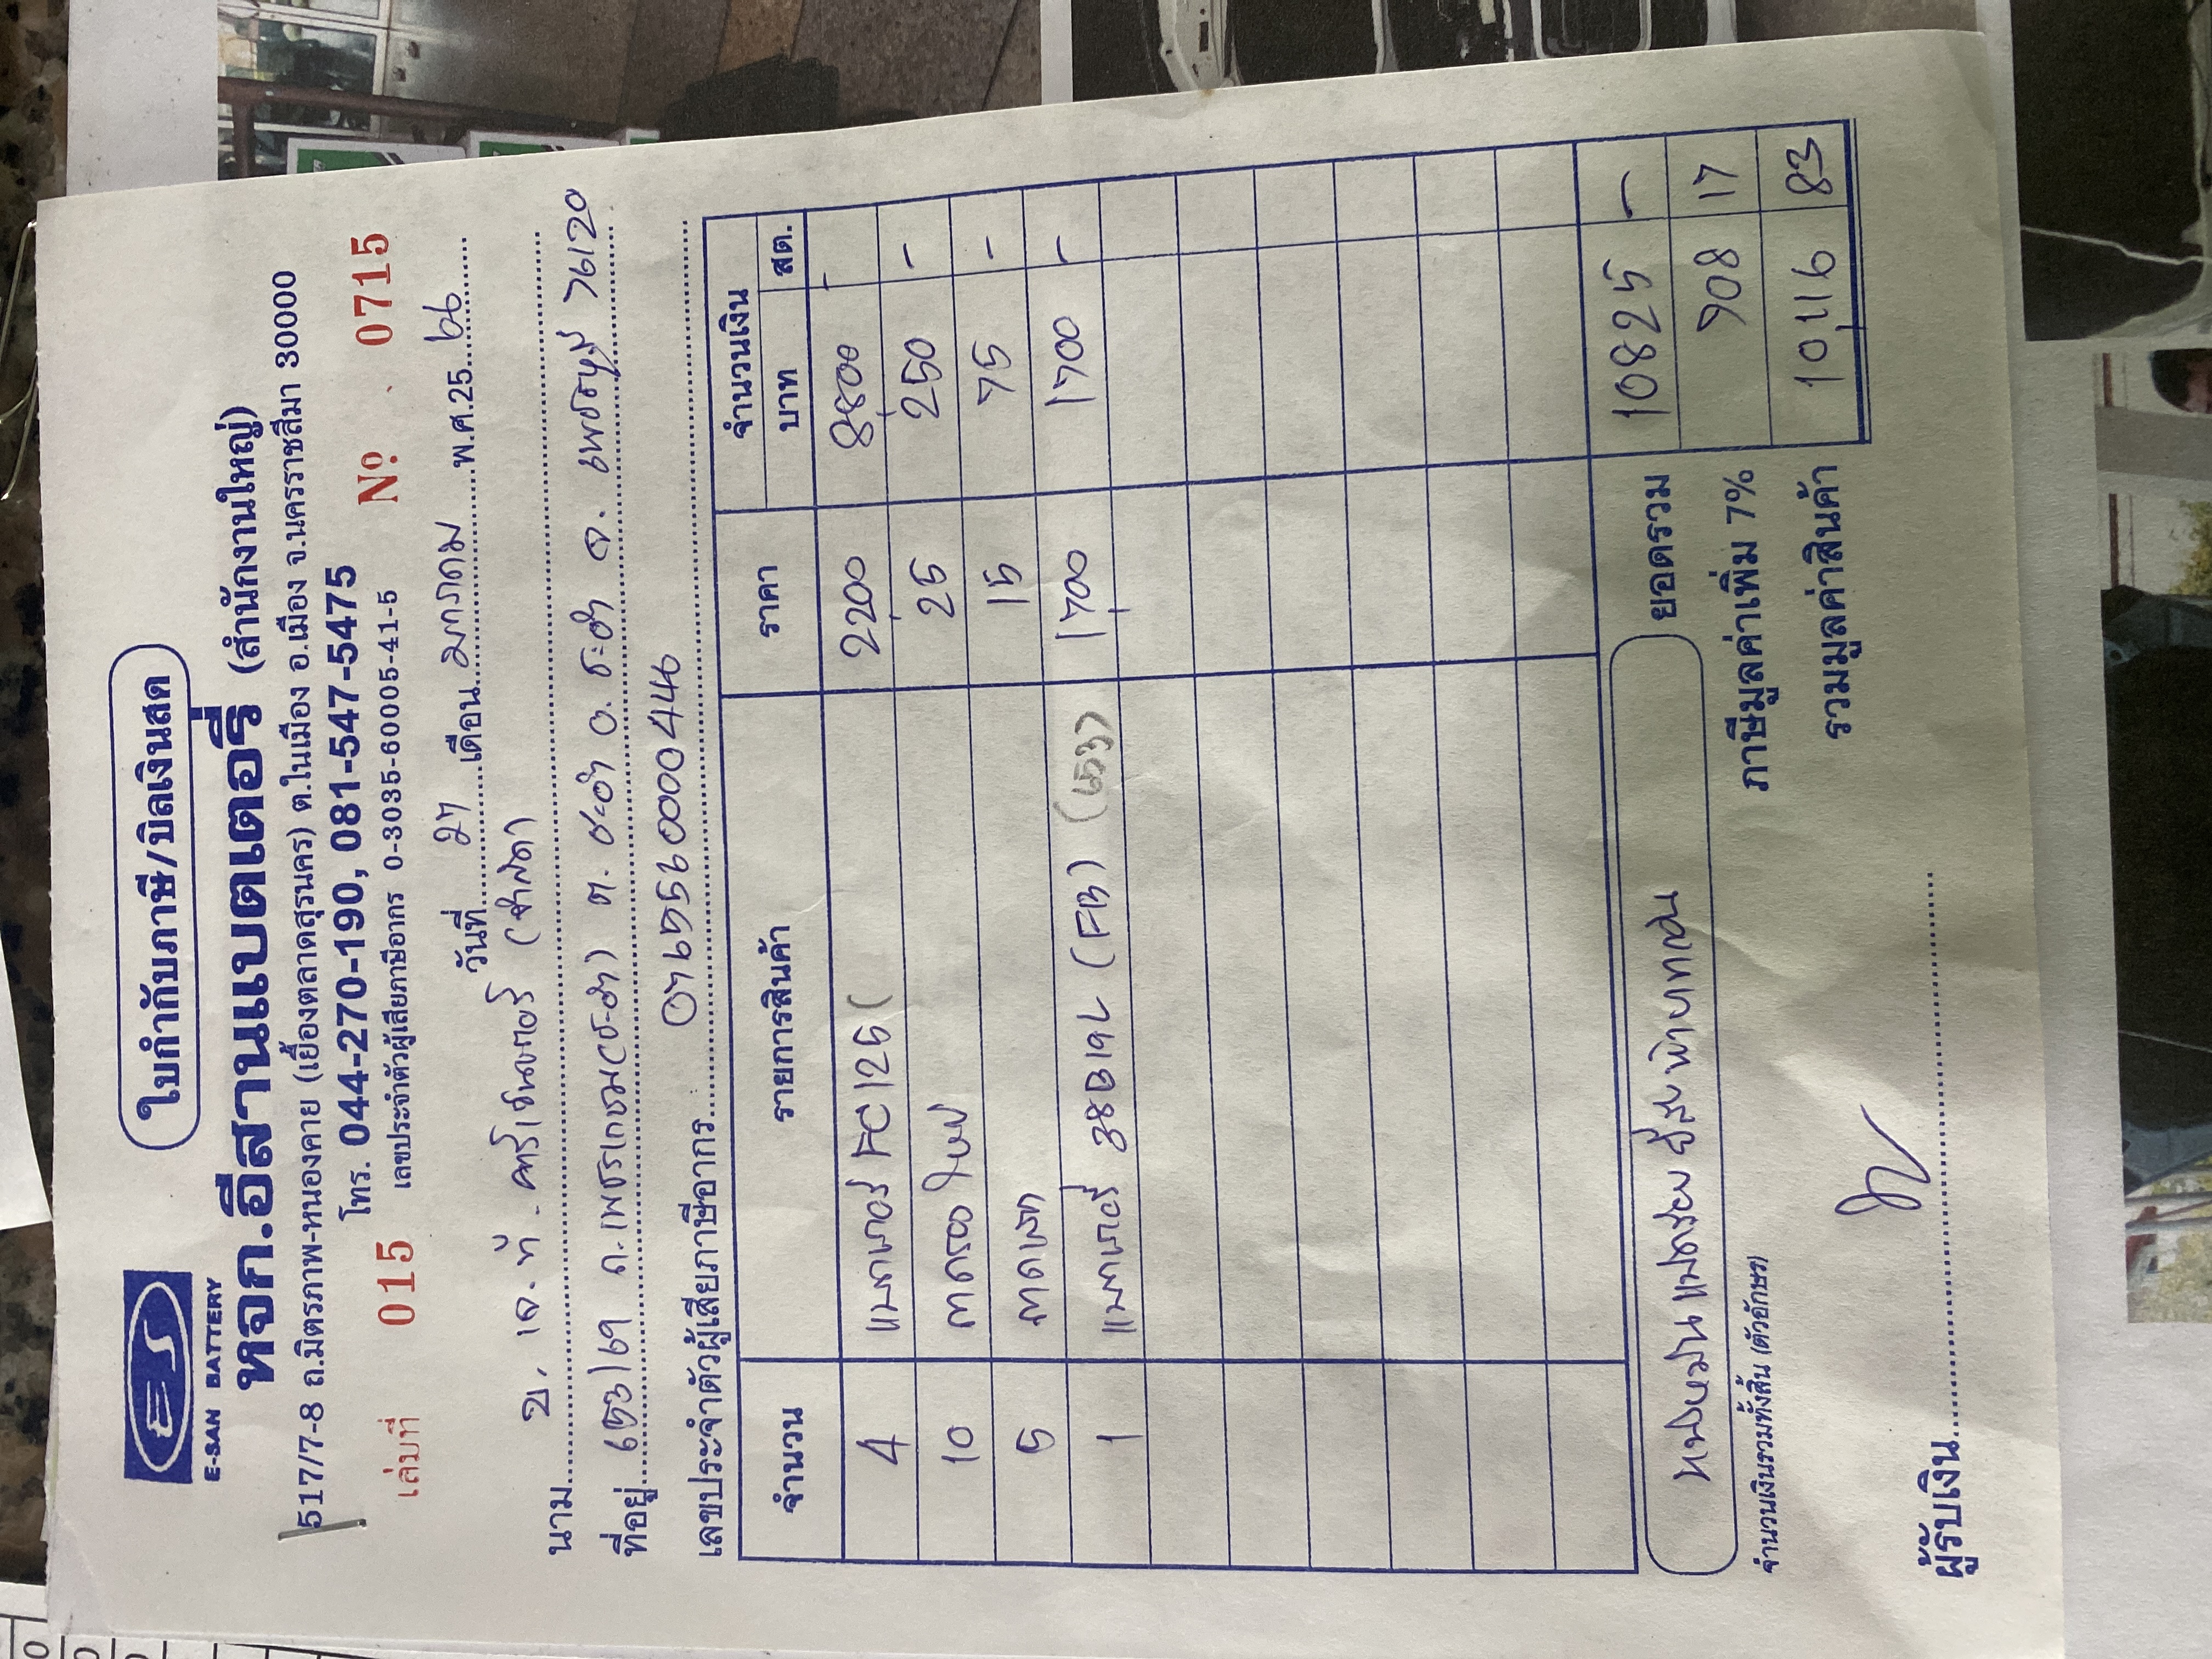 ใบกำกับภาษี/บิลเงินสด
E-SAN BATTERY
หจก.อีสานแบตเตอรี่ (สำนักงานใหญ่)
517/7-8 ถ.มิตรภาพ-หนองคาย (เยื้องตลาดสุรนคร) ต.ในเมือง อ.เมือง จ.นครราชสีมา 30000
โทร. 044-270-190, 081-547-5475
เล่มที่ 015 เลขประจำตัวผู้เสียภาษีอากร 0-3035-60005-41-5 Nº 0715
วันที่ 27 เดือน มกราคม พ.ศ.25 66
นาม บ. เจ. ที.
ที่อยู่ 653/69 ถ.เพชรเกษม(ชะอำ) ต. ชะอำ อ. ชะอำ จ. เพชรบุรี 76120
เลขประจำตัวผู้เสียภาษีอากร 0765560000446
จำนวน รายการสินค้า ราคา จำนวนเงิน
บาท สต.
4 FC125 2200 8800 -
10 25 250 -
5 15 75 -
1 38B19L (FB) 1700 1700 -
ยอดรวม 10825 -
ภาษีมูลค่าเพิ่ม 7% 708 17
รวมมูลค่าสินค้า 10,116 83
หนึ่งหมื่นแปดร้อยยี่สิบห้าบาทถ้วน
จำนวนเงินรวมทั้งสิ้น (ตัวอักษร)
ผู้รับเงิน